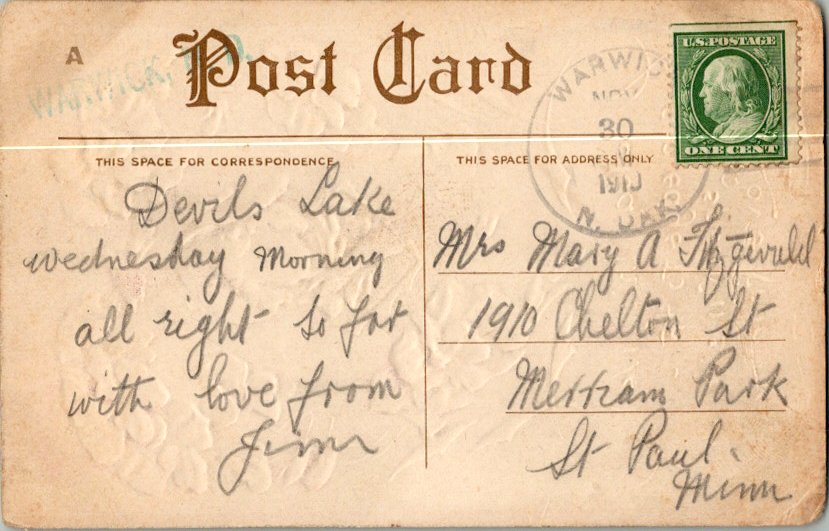 A
WARWICK, N.D.
Post Card
WARWICK
NOV
30
1910
N. DAK.
U.S. POSTAGE
ONE CENT
THIS SPACE FOR CORRESPONDENCE
THIS SPACE FOR ADDRESS ONLY
Devils Lake
Wednesday Morning
all right so far
with love from
Jim
Mrs Mary A Fitzgerald
1910 Chelton St
Merriam Park
St Paul.
Minn